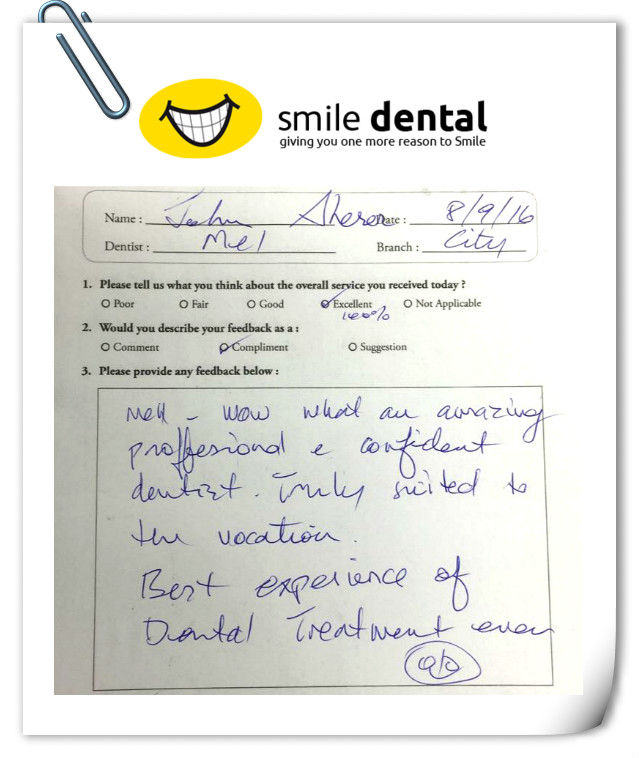 smile dental
giving you one more reason to Smile
Name : John Date : 8/9/16
Dentist : Mel Branch : City
1. Please tell us what you think about the overall service you received today ?
Poor Fair Good Excellent Not Applicable
100%
2. Would you describe your feedback as a :
Comment Compliment Suggestion
3. Please provide any feedback below :
Mell - Wow what an amazing
proffesional e confident
dentist. Truly suited to
the vocation.
Best experience of
Dental Treatment ever